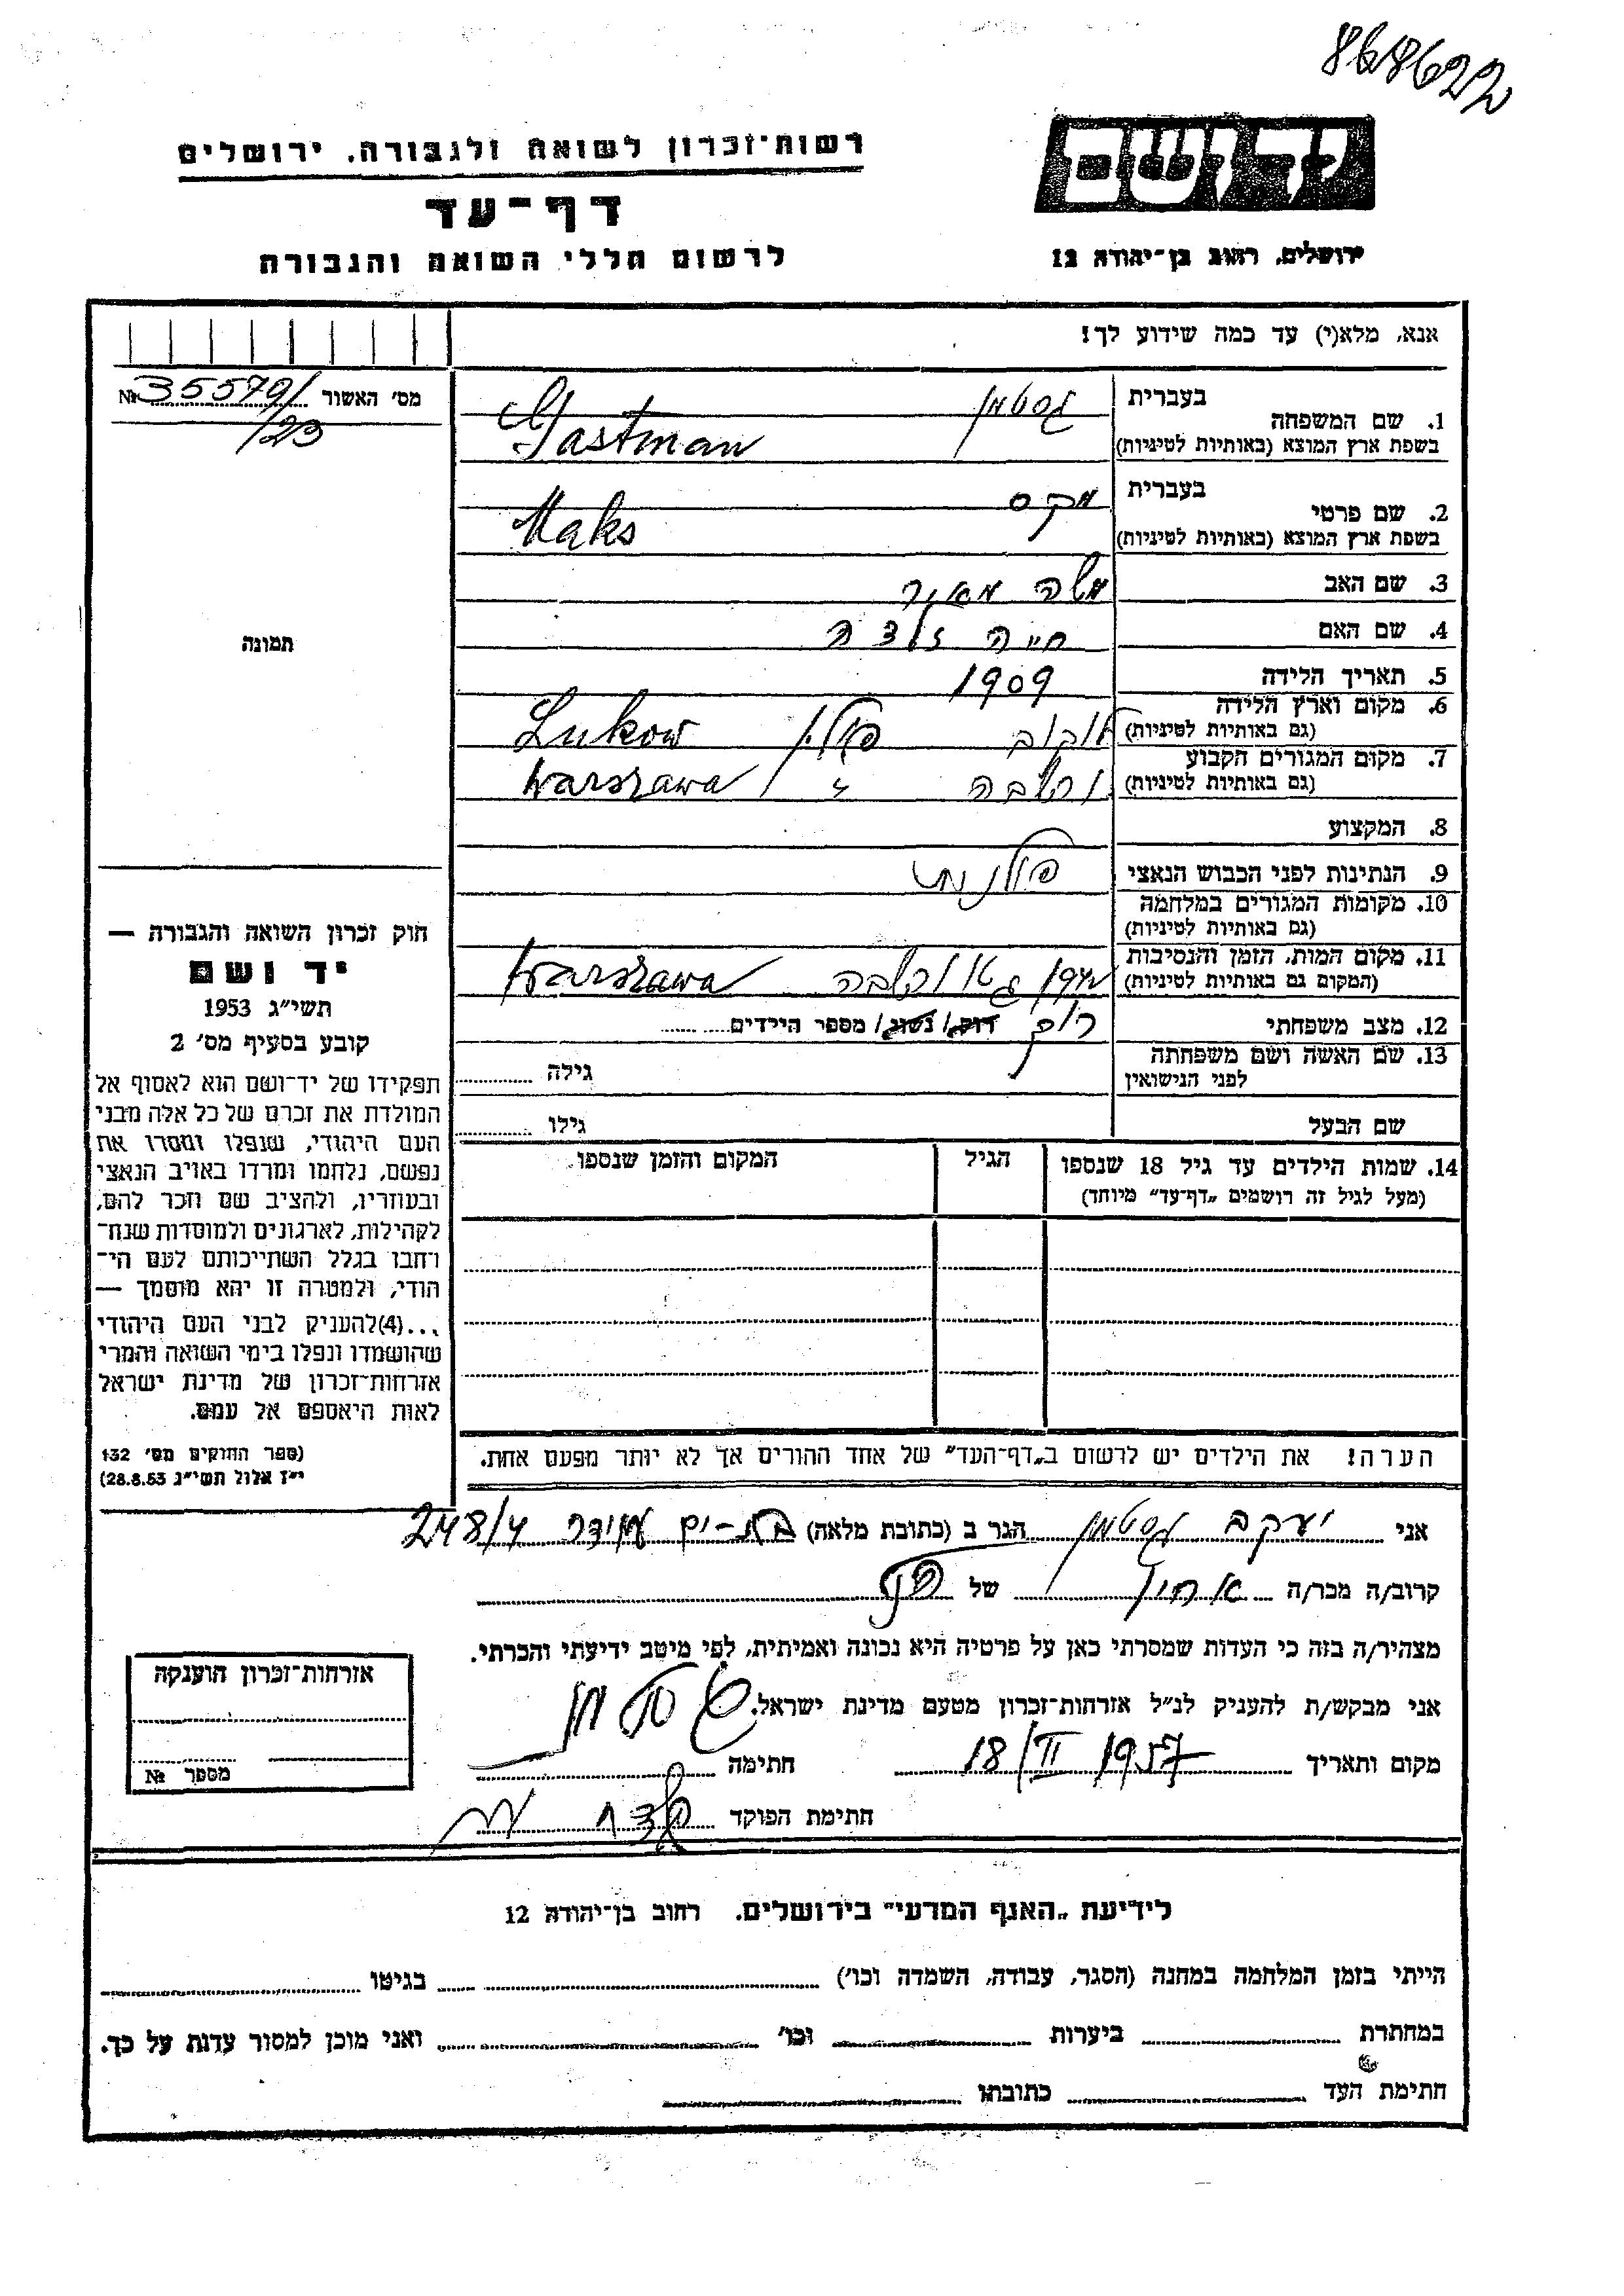 868622
יד ושם
רשות־זכרון לשואה ולגבורה, ירושלים
דף־עד
ירושלים, רחוב בן־יהודה 12
לרשום חללי השואה והגבורה
אנא, מלא(י) עד כמה שידוע לך!
מס׳ האשור № 35579/
/23
תמונה
1. שם המשפחה
בעברית גסטמן
בשפת ארץ המוצא (באותיות לטיניות) Gastman
2. שם פרטי
בעברית מקס
בשפת ארץ המוצא (באותיות לטיניות) Maks
3. שם האב משה מאיר
4. שם האם חיה זלדה
5. תאריך הלידה 1909
6. מקום וארץ הלידה
(גם באותיות לטיניות) לוקוב פולין Lukow
7. מקום המגורים הקבוע
(גם באותיות לטיניות) ורשבה " Warszawa
8. המקצוע
9. הנתינות לפני הכבוש הנאצי פולנית
10. מקומות המגורים במלחמה
(גם באותיות לטיניות)
11. מקום המות, הזמן והנסיבות
(המקום גם באותיות לטיניות) גטו ורשבה Warszawa
12. מצב משפחתי רוק רווק/ נשוי/ מספר הילדים
13. שם האשה ושם משפחתה
לפני הנישואין גילה
שם הבעל גילו
14. שמות הילדים עד גיל 18 שנספו הגיל המקום והזמן שנספו
(מעל לגיל זה רושמים „דף־עד״ מיוחד)
הערה! את הילדים יש לרשום ב„דף־העד״ של אחד ההורים אך לא יותר מפעם אחת.
חוק זכרון השואה והגבורה —
יד ושם
תשי״ג 1953
קובע בסעיף מס׳ 2
תפקידו של יד־ושם הוא לאסוף אל
המולדת את זכרם של כל אלה מבני
העם היהודי, שנפלו ומסרו את
נפשם, נלחמו ומרדו באויב הנאצי
ובעוזריו, ולהציב שם וזכר להם,
לקהילות, לארגונים ולמוסדות שנח־
רבו בגלל השתייכותם לעם הי־
הודי, ולמטרה זו יהא מוסמך —
...(4)להעניק לבני העם היהודי
שהושמדו ונפלו בימי השואה והמרי
אזרחות־זכרון של מדינת ישראל
לאות היאספם אל עמם.
(ספר החוקים מס׳ 132
י״ז אלול תשי״ג 28.8.53)
אני יעקב גסטמן הגר ב (כתובת מלאה) בת-ים עמידר 248/4
קרוב/ה מכר/ה אחין של
מצהיר/ה בזה כי העדות שמסרתי כאן על פרטיה היא נכונה ואמיתית, לפי מיטב ידיעתי והכרתי.
אני מבקש/ת להעניק לנ״ל אזרחות־זכרון מטעם מדינת ישראל.
מקום ותאריך 18/II 1957 חתימה גסטמן
חתימת הפוקד
אזרחות־זכרון הוענקה
מספר №
לידיעת „האגף המדעי״ בירושלים, רחוב בן־יהודה 12
הייתי בזמן המלחמה במחנה (הסגר, עבודה, השמדה וכו׳) בגיטו
במחתרת ביערות וכו׳ ואני מוכן למסור עדות על כך.
חתימת העד כתובתו